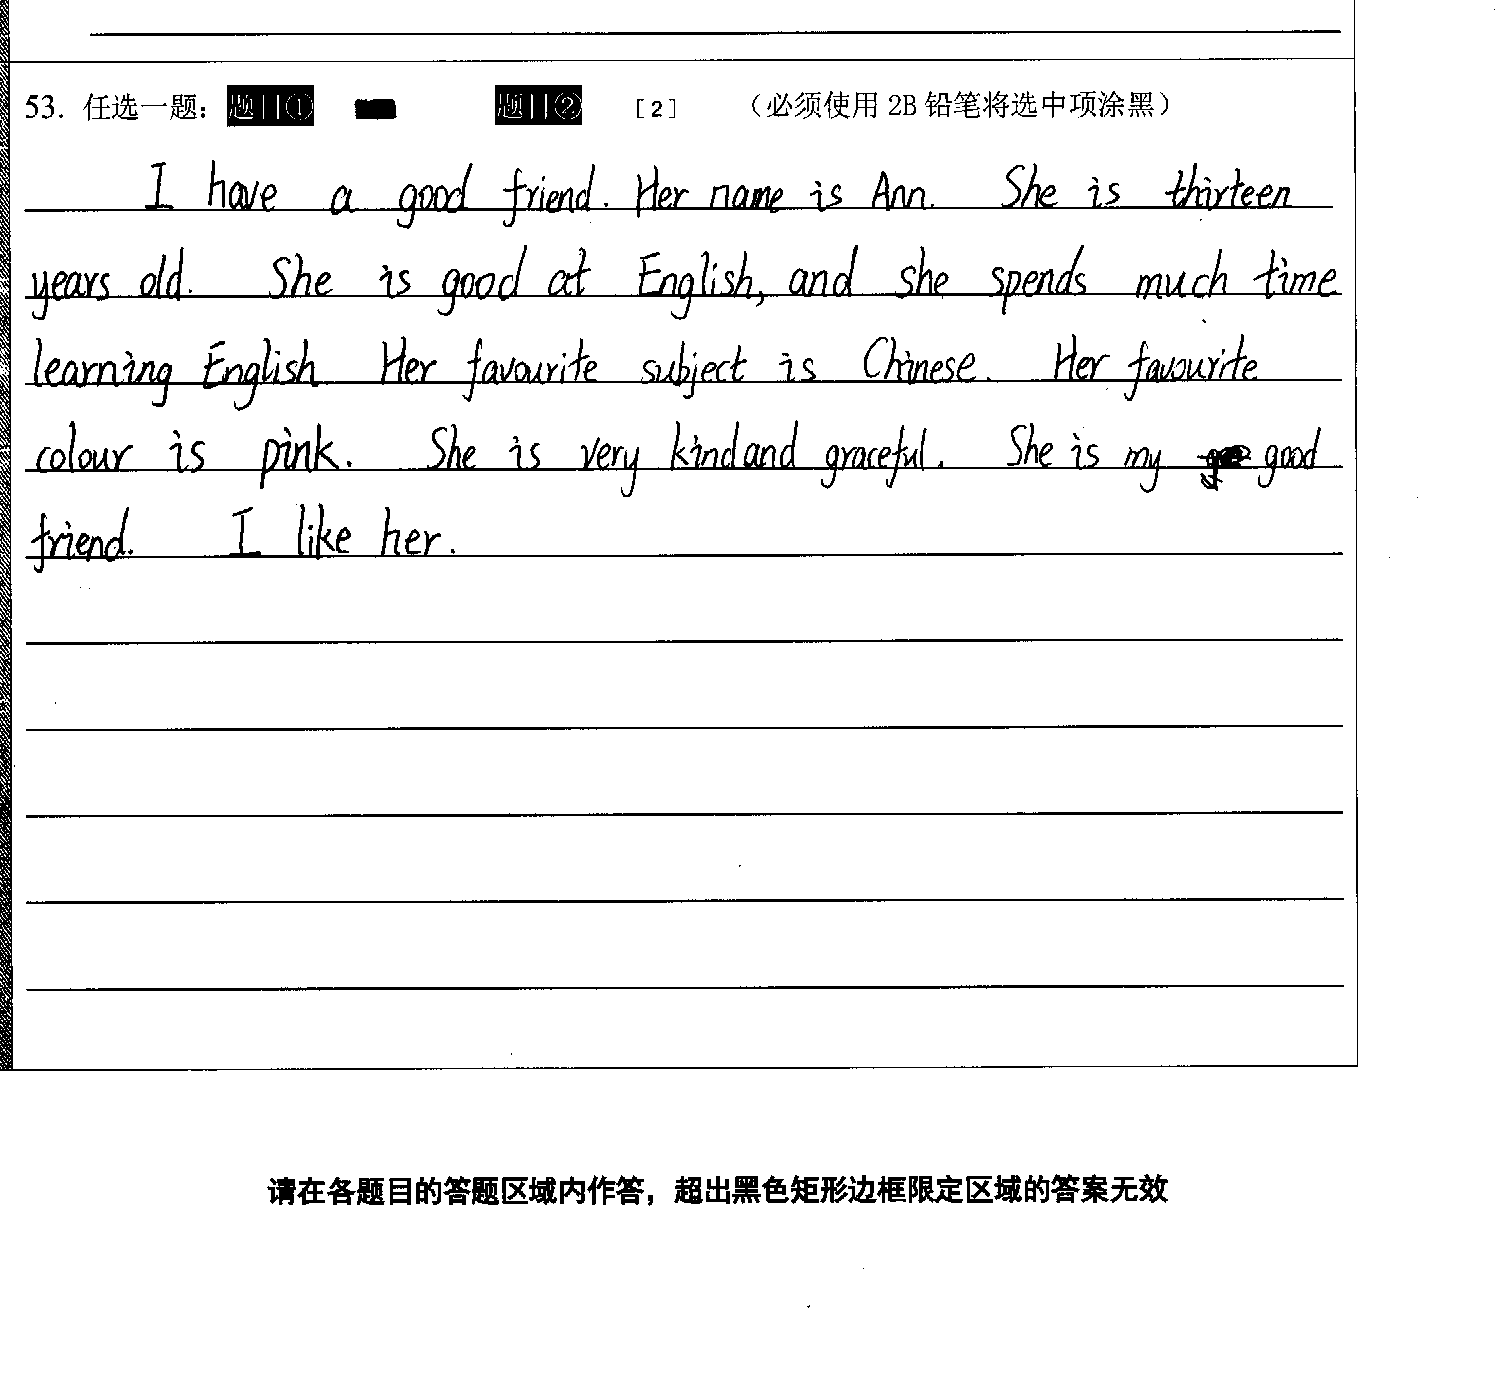 53. 任选一题： 题目① 题目② [2] （必须使用 2B 铅笔将选中项涂黑）
I have a good friend. Her name is Ann. She is thirteen
years old. She is good at English, and she spends much time
learning English Her favourite subject is Chinese. Her favourite
colour is pink. She is very kind and graceful. She is my good
friend. I like her.
请在各题目的答题区域内作答，超出黑色矩形边框限定区域的答案无效